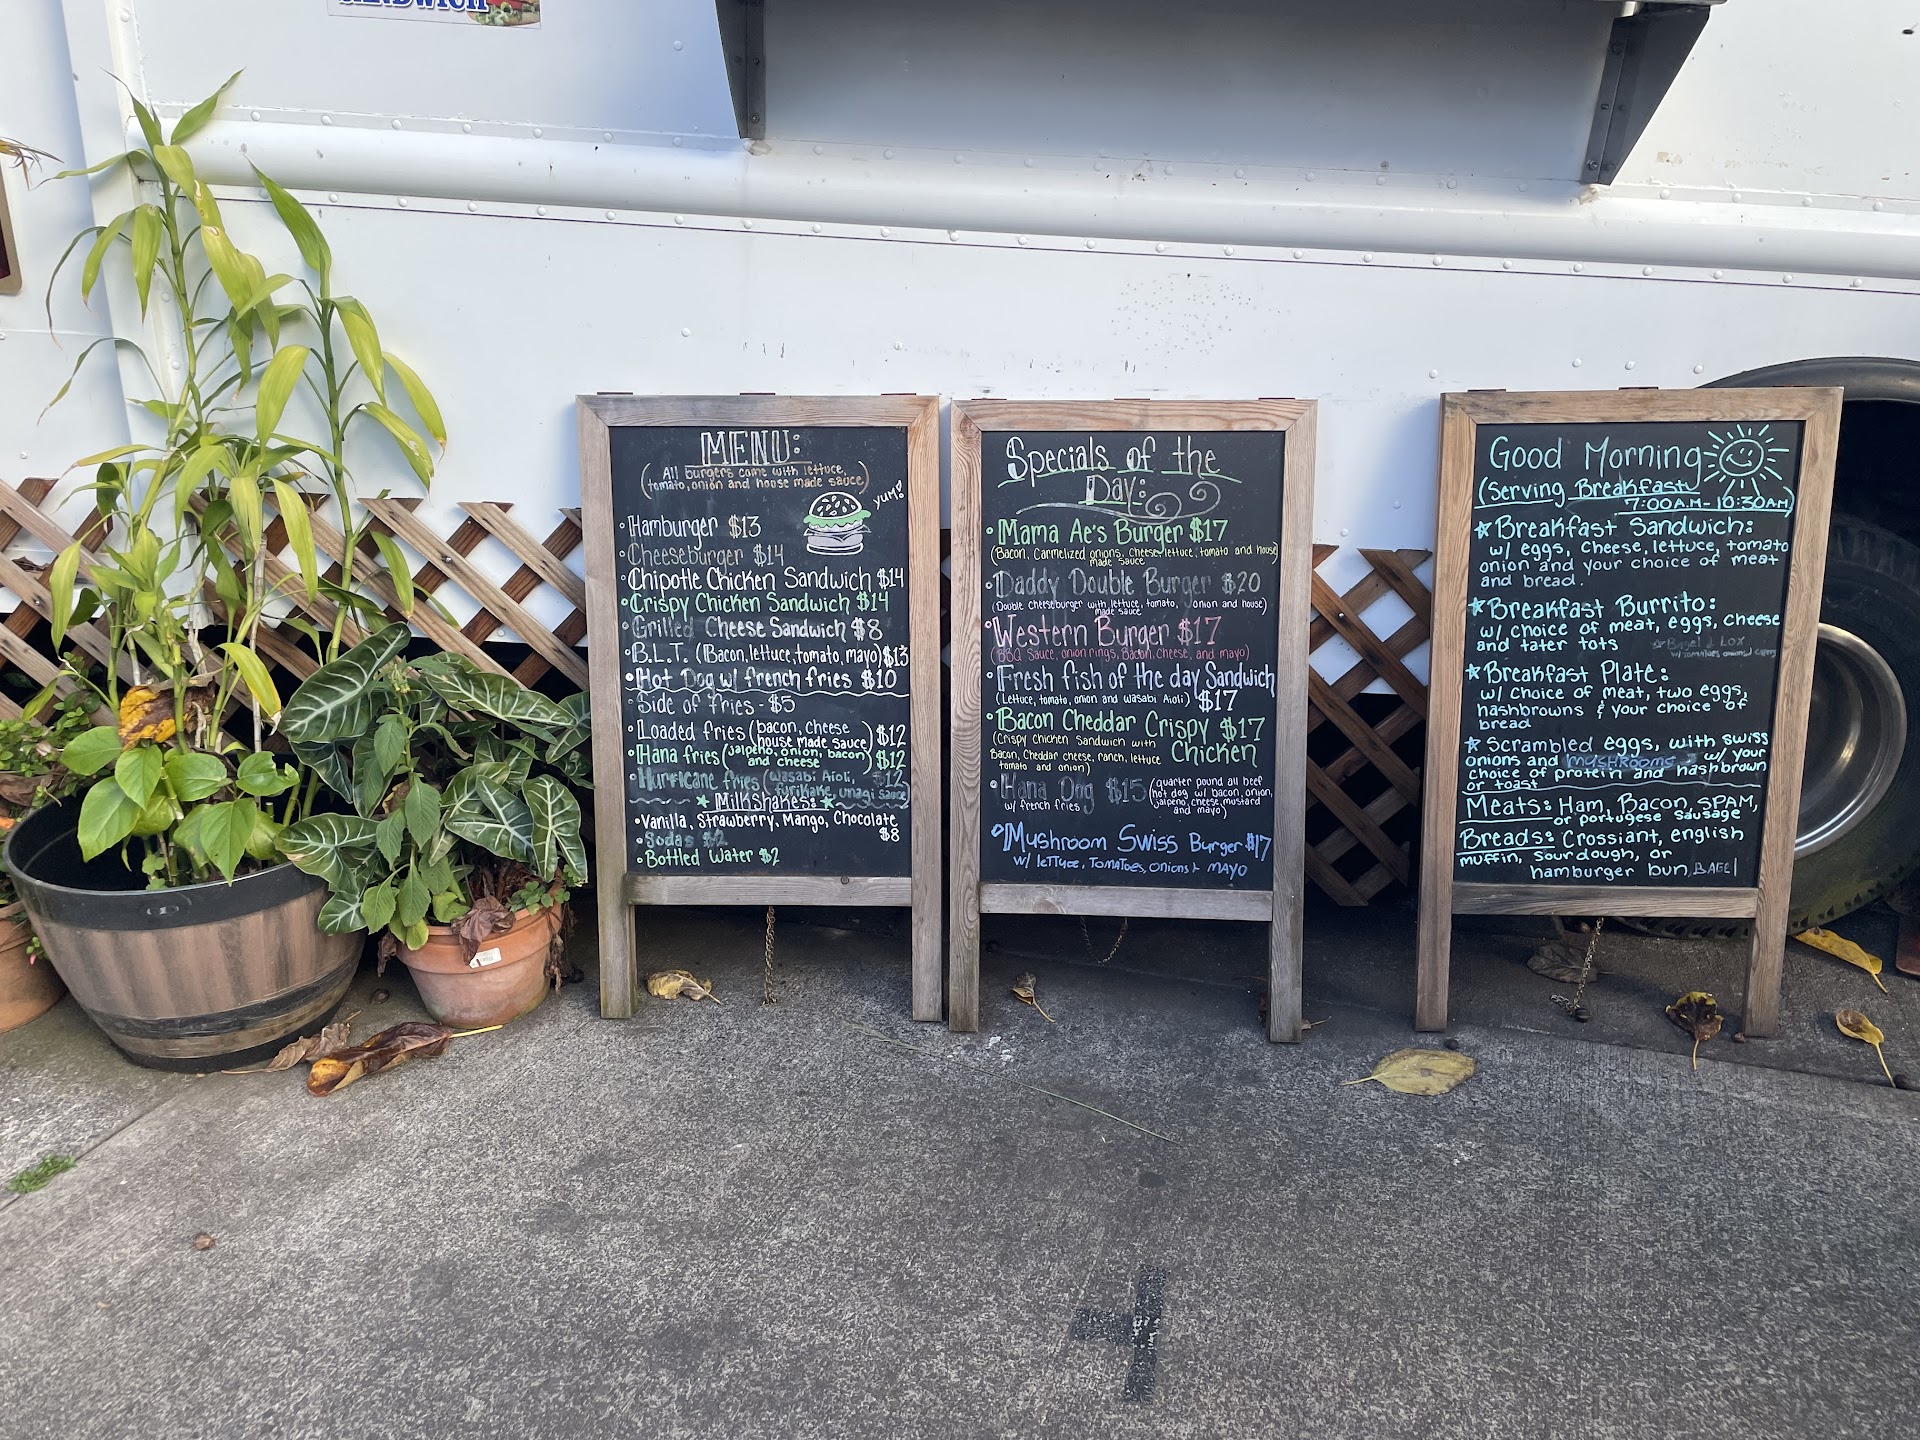 SANDWICH
MENU:
(All burgers come with lettuce,
tomato, onion and house made sauce)
YUM!
Hamburger $13
Cheeseburger $14
Chipotle Chicken Sandwich $14
Crispy Chicken Sandwich $14
Grilled Cheese Sandwich $8
B.L.T. (Bacon, lettuce, tomato, mayo) $13
Hot Dog w/ french fries $10
Side of fries - $5
Loaded fries (bacon, cheese
house made sauce) $12
Hana fries (jalapeño, onion, bacon)
and cheese $12
Hurricane fries (wasabi Aioli, $12
furikake, unagi sauce)
Milkshakes:
Vanilla, Strawberry, Mango, Chocolate
$8
Sodas $2
Bottled Water $2
Specials of the
Day:
Mama Ae's Burger $17
(Bacon, Carmelized onions, cheese, lettuce, tomato and house)
made sauce
Daddy Double Burger $20
(Double cheeseburger with lettuce, tomato, onion and house)
made sauce
Western Burger $17
(BBQ Sauce, onion rings, Bacon, cheese, and mayo)
Fresh fish of the day Sandwich
(Lettuce, tomato, onion and wasabi Aioli) $17
Bacon Cheddar Crispy $17
Chicken
(Crispy Chicken Sandwich with
Bacon, Cheddar cheese, ranch, lettuce
tomato and onion)
Hana Dog $15
w/ french fries
(quarter pound all beef
hot dog w/ bacon, onion,
jalapeno, cheese, mustard
and mayo)
Mushroom Swiss Burger $17
w/ lettuce, Tomatoes, onions & MAYO
Good Morning
(Serving Breakfast
7:00A.M-10:30AM)
Breakfast Sandwich:
w/ eggs, cheese, lettuce, tomato
onion and your choice of meat
and bread.
Breakfast Burrito:
w/ choice of meat, eggs, cheese
and tater tots
Bagel & Lox
w/ Tomatoes onions capers
Breakfast Plate:
w/ choice of meat, two eggs,
hashbrowns & your choice of
bread
Scrambled eggs, with swiss
onions and mushrooms w/ your
choice of protein and hashbrown
or toast
Meats: Ham, Bacon, SPAM,
or portugese sausage
Breads: Crossiant, english
muffin, sourdough, or
hamburger bun, BAGEl